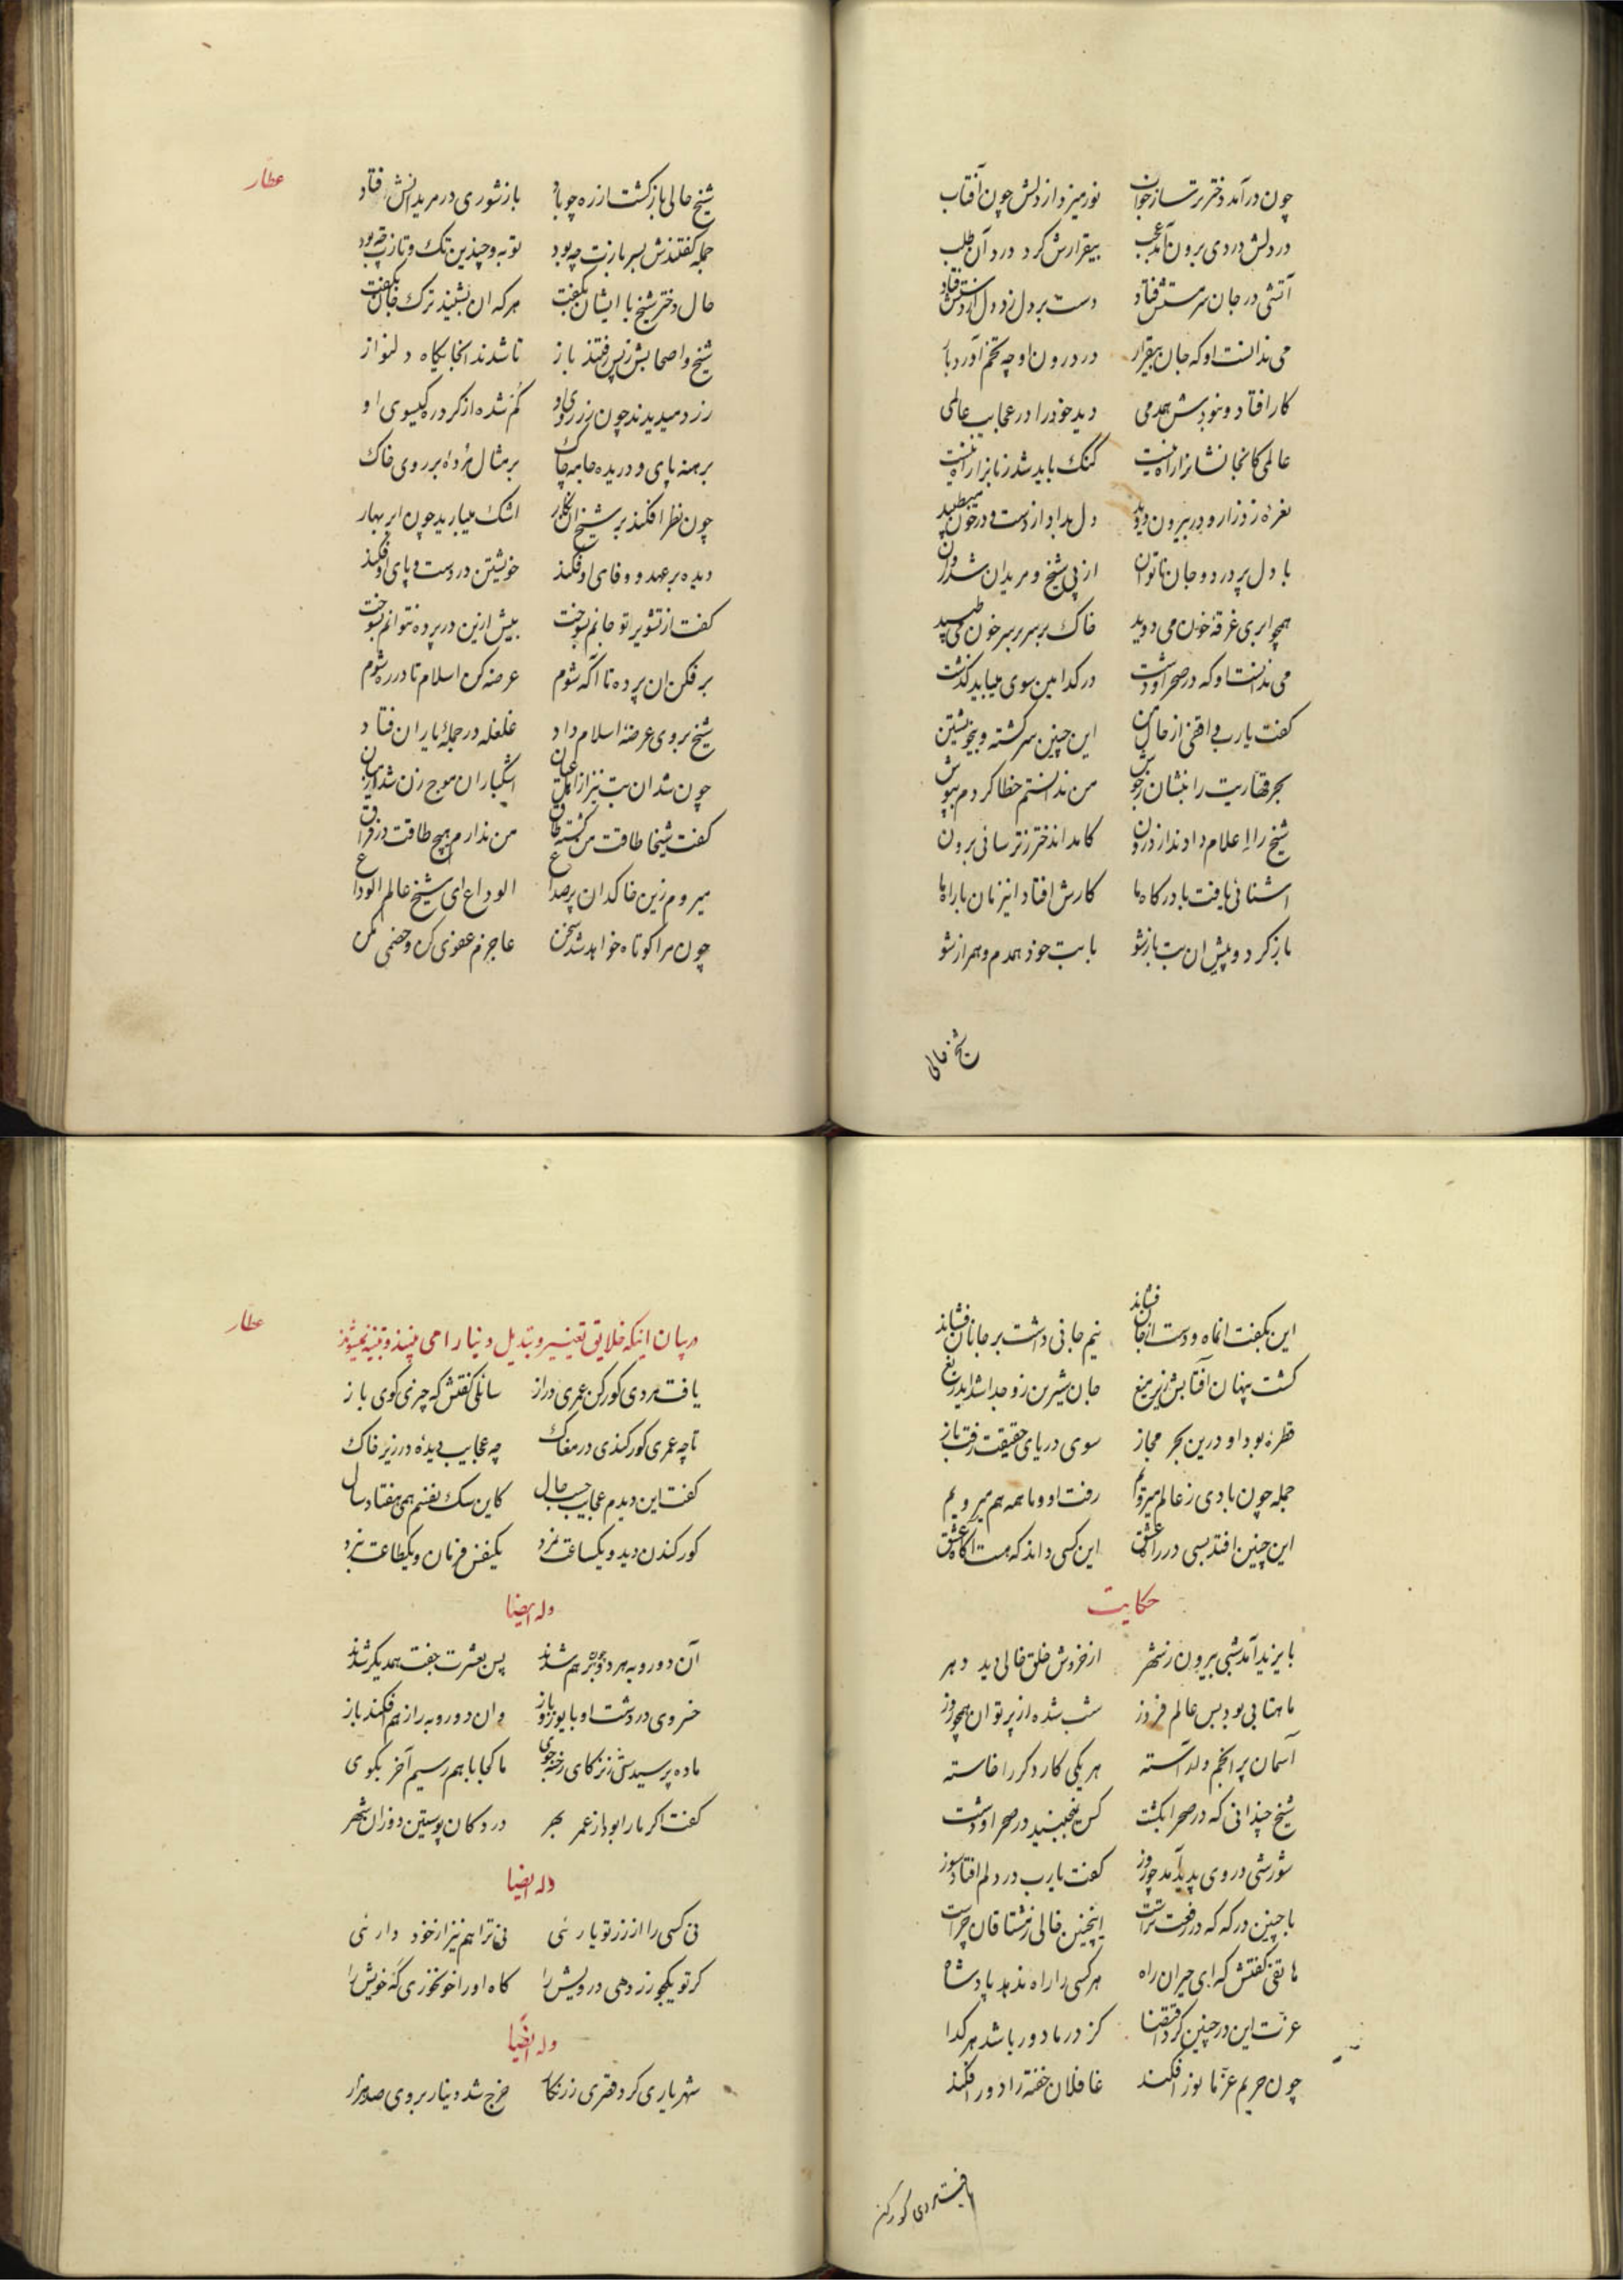 چون درآمد دختر ترسا ز خواب نور میزد از دلش چون آفتاب
در دلش دردی برون آمد عجب بیقرارش کرد درد آن طلب
آتشی در جان سرمستش فتاد دست بر دل زد دل از دستش فتاد
می ندانست او که جان بیقرار در درون او چه تخم آورد بار
کار افتاد و نبودش همدمی دید خود را در عجایب عالمی
عالمی کانجا نشان راه نیست گنگ باید شد زبان را راه نیست
نعره زد زار و در بیرون دوید دل بداد از دست و در خون میطپید
با دل پر درد و جان ناتوان از پی شیخ و مریدان شد دوان
همچو ابری غرقه خون می دوید خاک بر سر بر سر خون می طپید
می ندانست او که در صحرا و دشت در کدامین سوی میباید گذشت
گفت یارب
بحر قهاریت را بنشان ز جوش من ندانستم خطا کردم بپوش
شیخ را اعلام دادند از درون کامد اندختر ز ترسائی برون
اشنائی یافت با درگاه ما کارش افتاد اینزمان با راه ما
بازگرد و پیش ان بت باز شو با بت خود همدم و همراز شو
شیخ حالی
عطار
شیخ حالی بازگشت از ره چو باد باز شوری در مریدانش فتاد
جمله گفتندش بسر بازت چه بود توبه و چندین تک و تازت چه بود
حال دختر شیخ با ایشان بگفت هر که ان بشنید ترک جان بگفت
شیخ و اصحابش ز پس رفتند باز تا شدند انجا بگاه دلنواز
زرد میدیدند چون زر روی او گم شده از گرد ره گیسوی او
برهنه پای و دریده جامه چاک بر مثال مرده بر روی خاک
چون نظر افکند بر شیخ ان نگار اشک میبارید چون ابر بهار
دیده بر عهد و وفای او فکند خویشتن در دست و پای او فکند
گفت از تشویر تو جانم بسوخت بیش ازین در پرده نتوانم بسوخت
برفکن ان پرده تا آگه شوم عرضه کن اسلام تا در ره شوم
شیخ بر وی عرضهٔ اسلام داد غلغله در جمله یاران فتاد
چون شد ان بت نیز از اهل عیان اشکباران موج زن شد در میان
گفت شیخا طاقت من گشت طاق من ندارم هیچ طاقت در فراق
میروم زین خاکدان پر صداع الوداع ای شیخ عالم الوداع
چون مرا کوتاه خواهد شد سخن عاجزم عفوی کن و خصمی مکن
این بگفت انماه و دست از جان فشاند نیم جانی داشت بر جانان فشاند
گشت پنهان آفتابش زیر میغ جان شیرین زو جدا شد ایدریغ
قطرهٔ بود او درین بحر مجاز سوی دریای حقیقت رفت باز
جمله چون بادی ز عالم میرویم رفت او و ما همه هم میرویم
این چنین افتد بسی در راه عشق این کسی داند که هست آگاه عشق
حکایت
بایزید آمد شبی بیرون ز شهر از خروش خلق خالی دید دهر
ماهتابی بود بس عالم فروز شب شده از پرتو ان همچو روز
آسمان پر انجم و آراسته هر یکی کار دگر را خاسته
شیخ چندانی که در صحرا بگشت کس نمیجنبید در صحرا و دشت
شورشی در وی پدید آمد چو روز گفت یارب در دلم افتاد سوز
با چنین درگه که در رفعت تراست اینچنین خالی ز مشتاقان چراست
هاتفی گفتش که ای حیران راه هر کسی را راه ندهد پادشاه
عزت این در چنین کرد اقتضا کز در ما دور باشد هر گدا
چون حریم عز ما نور افکند غافلان خفته را دور افکند
یافت مردی گورکن
عطار
در بیان اینکه خلایق تغییر و تبدیل دنیا را می بینند و متنبه نمیشوند
یافت مردی گورکن عمری دراز سائلی گفتش که چیزی گوی باز
تا چه عمری گور کندی در مغاک چه عجایب دیدهٔ در زیر خاک
گفت این دیدم عجایب حسب حال کاین سگ نفسم همی هفتاد سال
گور کندن دید و یکساعت نمرد یکنفس فرمان و یکطاعت نبرد
وله ایضا
آن دو روبه هر دو چون هم بر شدند پس بعشرت جفت همدیگر شدند
خسروی در دشت او با یوز و باز وان دو روبه را ز هم افکند باز
ماده پرسیدش ز نر کای رخنه جوی ما کجا با هم رسیم آخر بگوی
گفت اگر ما را بود از عمر بهر در دکان پوستین دوزان شهر
وله ایضا
نی کسی را از زر تو یارئی نی ترا هم نیز از خود دارئی
گر تو یکجو زر دهی درویش را گاه او را خون خوری گه خویش را
وله ایضا
شهریاری کرد قصری زرنگار خرج شد دینار بر وی صد هزار